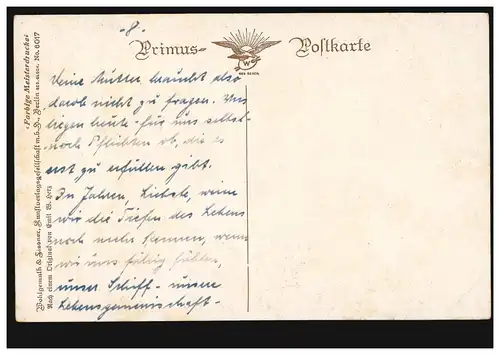 -8-
Primus- Postkarte
W
GES. GESCH.
Deine Mutter braucht also
darob nicht zu fragen. Uns
liegen heute - für uns selbst -
noch Pflichten ob, die es
erst zu erfüllen gibt.
In Jahren, Liebste, wenn
wir die Tiefen des Lebens
noch mehr kennen, wenn
wir uns fähig fühlen,
unser Schiff - unsere
Lebensgemeinschaft -
"Farbige Meisterdrucke"
Wohlgemuth & Lissner, Kunstverlagsgesellschaft m.b.H., Berlin No. 6017
Nach einem Original von Emil W. Herz